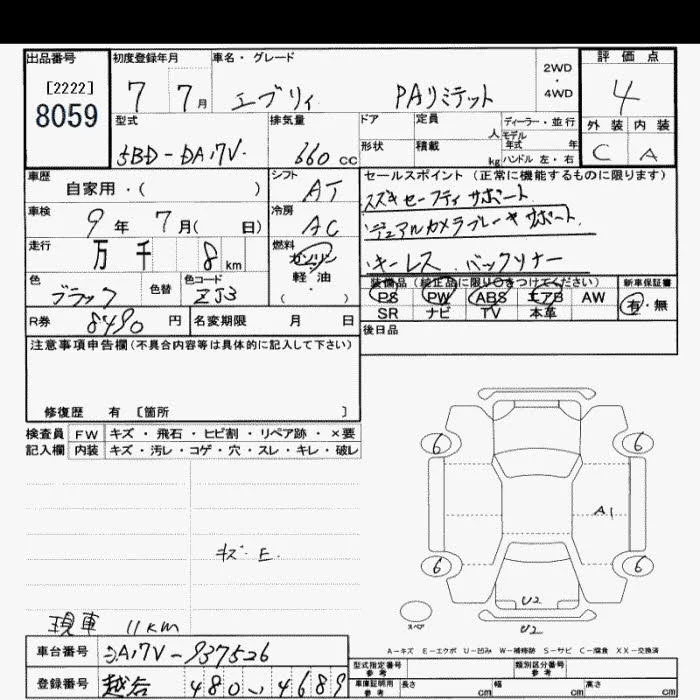 出品番号 初度登録年月 車名・グレード 2WD・4WD 評価点
[2222]
8059
7 7月 エブリィ PAリミテッド 4
型式 排気量 ドア 定員 人 ディーラー・並行 外装 内装
モデル年式 年
5BD-DA17V 660cc 形状 積載 kg ハンドル 左・右 C A
車歴 自家用・( ) シフト AT セールスポイント (正常に機能するものに限ります)
スズキセーフティサポート
車検 9年 7月( 日) 冷房 AC デュアルカメラブレーキサポート
走行 万 千 8km 燃料 ガソリン 軽・油 ( )
キーレス バックソナー
色 ブラック 色替 色コード ZJ3
装備品 (純正品に限り○をつけてください) 新車保証書
PS PW ABS エアB AW 有・無
SR ナビ TV 本革
R券 8490円 名変期限 月 日 後日品
注意事項申告欄(不具合内容等は具体的に記入して下さい)
修復歴 有 [箇所 ]
検査員 FW キズ・飛石・ヒビ割・リペア跡・×要
記入欄 内装 キズ・汚レ・コゲ・穴・スレ・キレ・破レ
6 6
A1
キズ E
6 6
U2
スペア
U2
現車 11KM
A-キズ E-エクボ U-凹み W-補修跡 S-サビ C-腐食 XX-交換済
車台番号 DA17V-937526
型式指定番号 参考 類別区分番号 参考
登録番号 越谷 480 い 4689
車庫証明用 参考 長さ cm 幅 cm 高さ cm